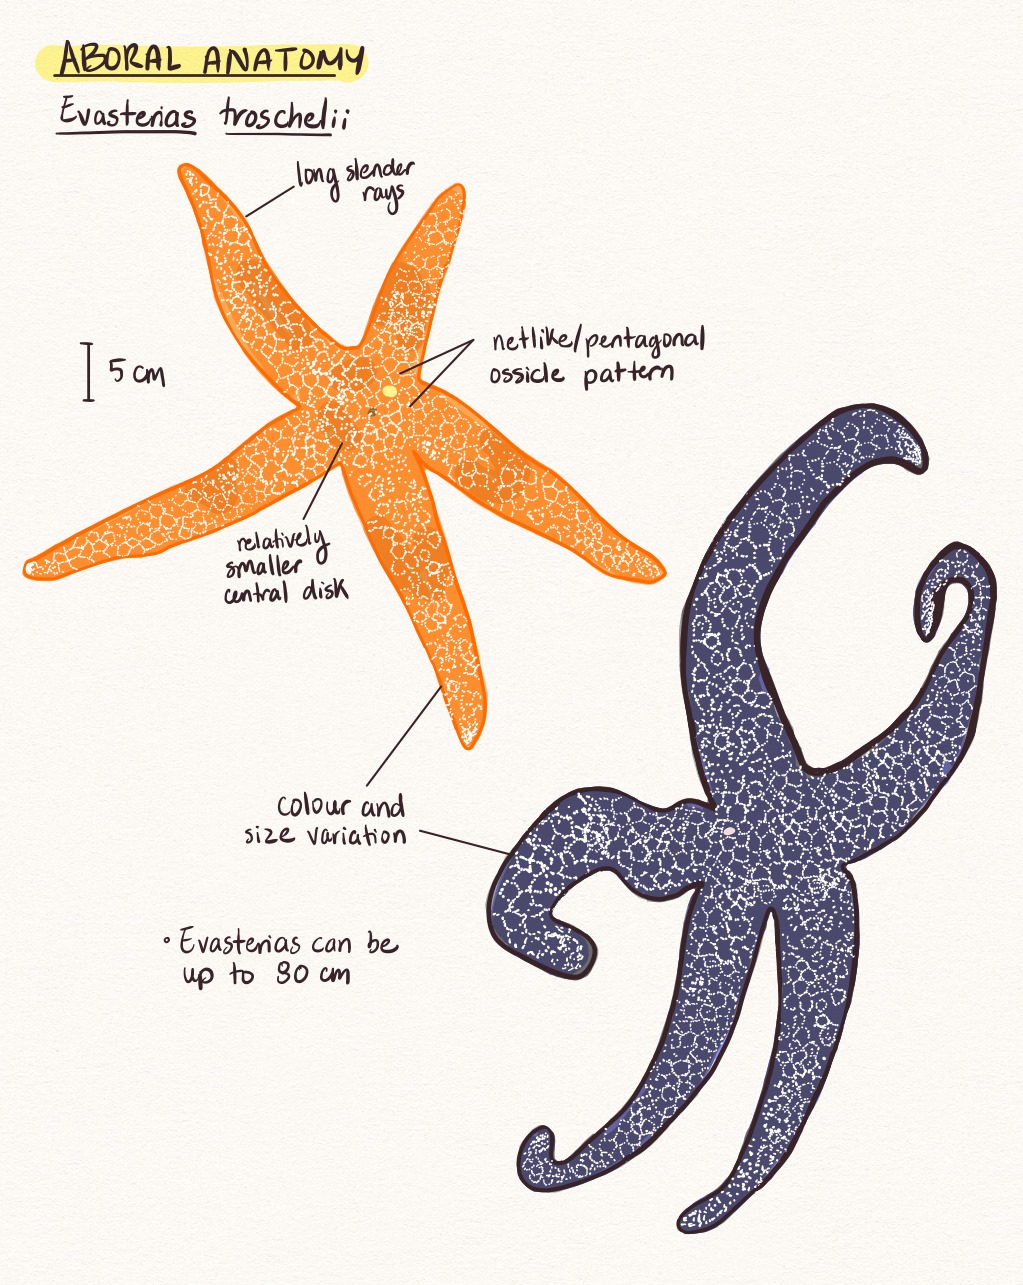 ABORAL ANATOMY
Evasterias troschelii
long slender
rays
netlike/pentagonal
ossicle pattern
5 cm
relatively
smaller
central disk
colour and
size variation
° Evasterias can be
up to 80 cm